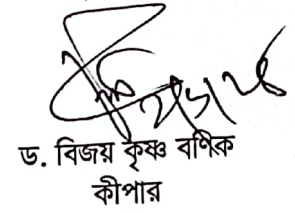 ড. বিজয় কৃষ্ণ বণিক
কীপার